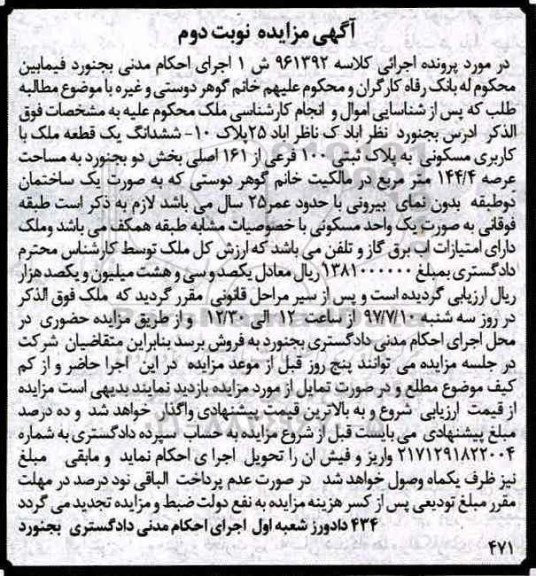 آگهی مزایده نوبت دوم
در مورد پرونده اجرائی کلاسه ۹۶۱۳۹۲ ش ۱ اجرای احکام مدنی بجنورد فیمابین
محکوم له بانک رفاه کارگران و محکوم علیهم خانم گوهر دوستی و غیره با موضوع مطالبه
طلب که پس از شناسایی اموال و انجام کارشناسی ملک محکوم علیه به مشخصات فوق
الذکر ادرس بجنورد نظر اباد ک ناظر اباد ۲۵ پلاک ۱۰- ششدانگ یک قطعه ملک با
کاربری مسکونی به پلاک ثبتی ۱۰۰ فرعی از ۱۶۱ اصلی بخش دو بجنورد به مساحت
عرصه ۱۴۴/۴ متر مربع در مالکیت خانم گوهر دوستی که به صورت یک ساختمان
دوطبقه بدون نمای بیرونی با حدود عمر ۲۵ سال می باشد لازم به ذکر است طبقه
فوقانی به صورت یک واحد مسکونی با خصوصیات مشابه طبقه همکف می باشد وملک
دارای امتیازات اب برق گاز و تلفن می باشد که ارزش کل ملک توسط کارشناس محترم
دادگستری بمبلغ ۱۳۸۱۰۰۰۰۰۰ ریال معادل یکصد و سی و هشت میلیون و یکصد هزار
ریال ارزیابی گردیده است و پس از سیر مراحل قانونی مقرر گردید که ملک فوق الذکر
در روز سه شنبه ۹۷/۷/۱۰ از ساعت ۱۲ الی ۱۲/۳۰ و از طریق مزایده حضوری در
محل اجرای احکام مدنی دادگستری بجنورد به فروش برسد بنابراین متقاضیان شرکت
در جلسه مزایده می توانند پنج روز قبل از موعد مزایده در این اجرا حاضر و از کم
کیف موضوع مطلع و در صورت تمایل از مورد مزایده بازدید نمایند بدیهی است مزایده
از قیمت ارزیابی شروع و به بالاترین قیمت پیشنهادی واگذار خواهد شد و ده درصد
مبلغ پیشنهادی می بایست قبل از شروع مزایده به حساب سپرده دادگستری به شماره
۲۱۷۱۲۹۱۸۲۲۰۰۴ واریز و فیش ان را تحویل اجرا ی احکام نماید و مابقی مبلغ
نیز ظرف یکماه وصول خواهد شد در صورت عدم پرداخت الباقی نود درصد در مهلت
مقرر مبلغ تودیعی پس از کسر هزینه مزایده به نفع دولت ضبط و مزایده تجدید می گردد
۴۳۴ دادورز شعبه اول اجرای احکام مدنی دادگستری بجنورد
۴۷۱